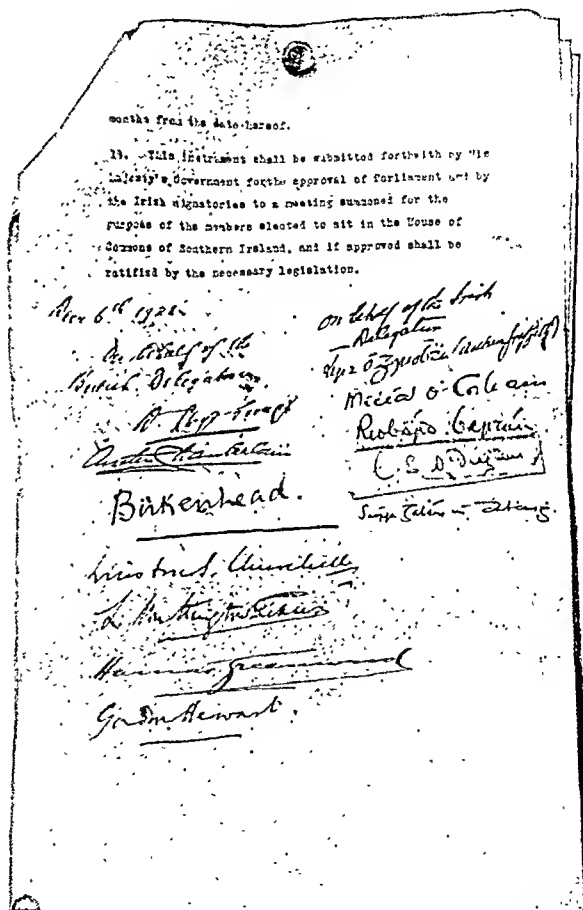 months from the date hereof.
19. This instrument shall be submitted forthwith by His
Majesty's Government for the approval of Parliament and by
the Irish signatories to a meeting summoned for the
purpose of the members elected to sit in the House of
Commons of Southern Ireland, and if approved shall be
ratified by the necessary legislation.
Decr 6th 1921.
On behalf of the
British Delegation,
D. Lloyd George
Austen Chamberlain
Birkenhead.
Winston S. Churchill
L Worthington Evans
Hamar Greenwood
Gordon Hewart.
On behalf of the Irish
Delegation
Art Ó Gríobhtha (Arthur Griffith)
Micheál Ó Coileáin
Riobárd Bartún